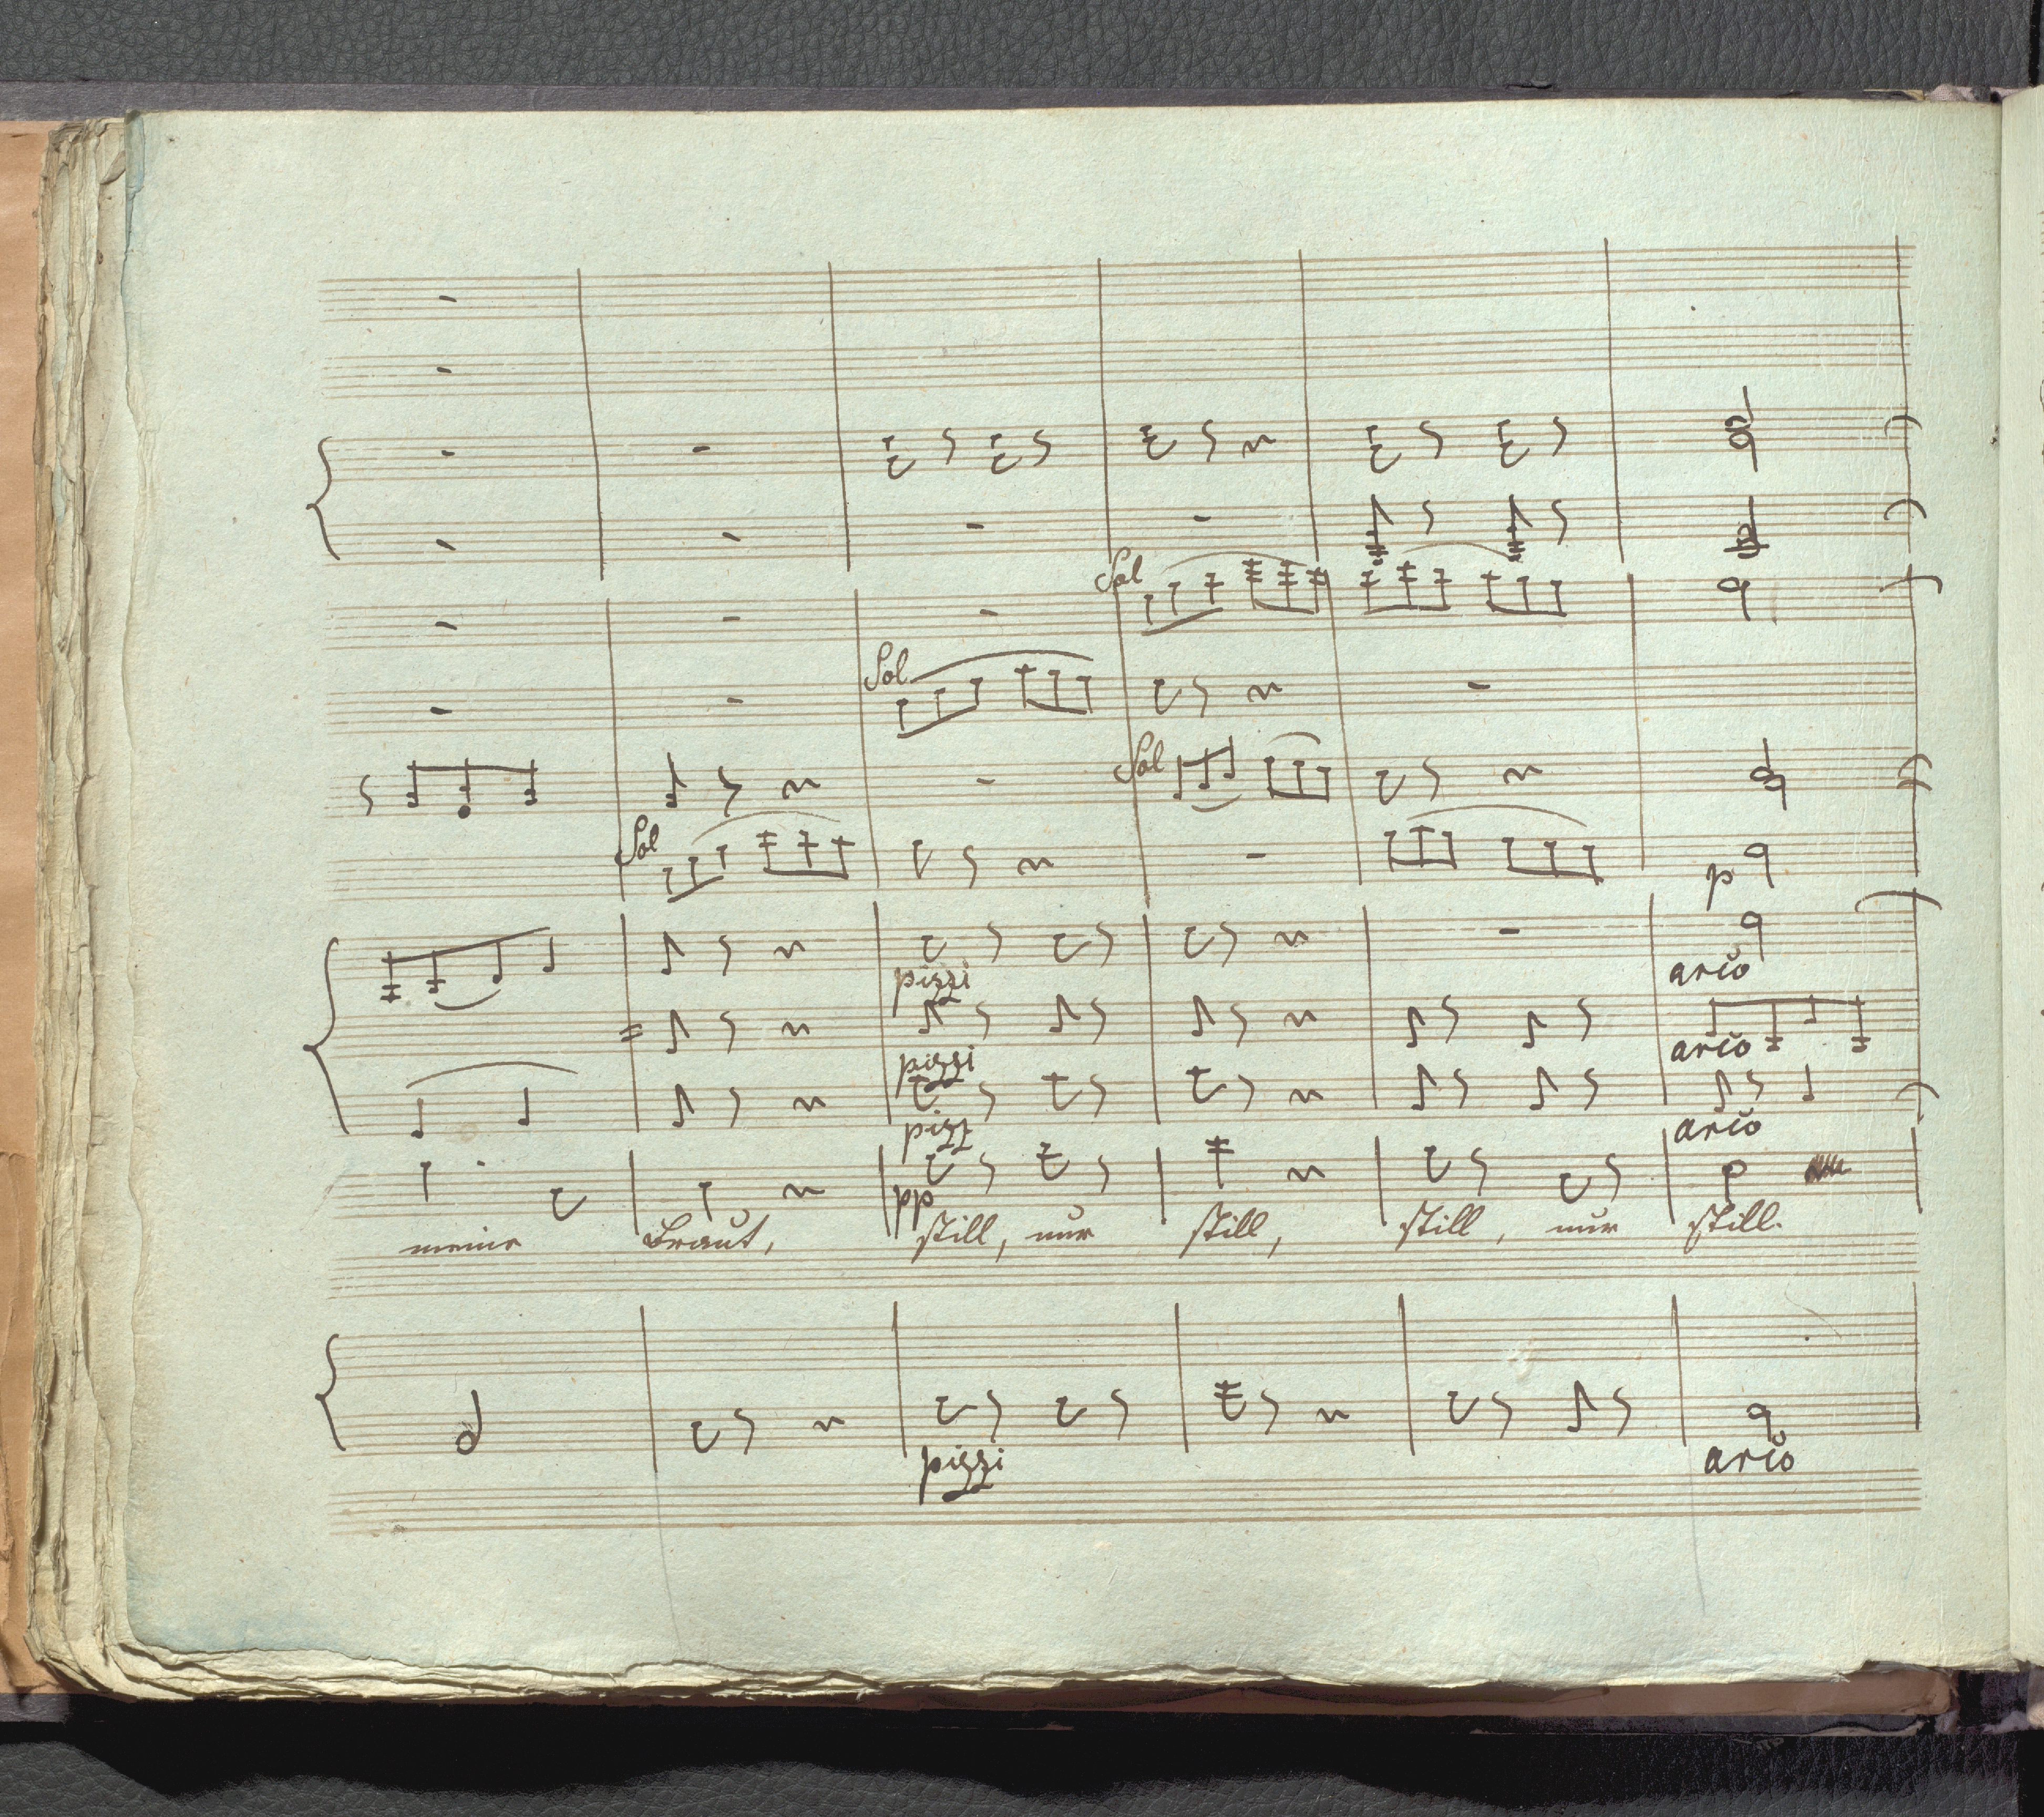 Sol
Sol
Sol
Sol
p
pizzi
arco
pizzi
arco
pizz
arco
pp
meine Braut, still, nur still, still, nur still.
pizzi
arco